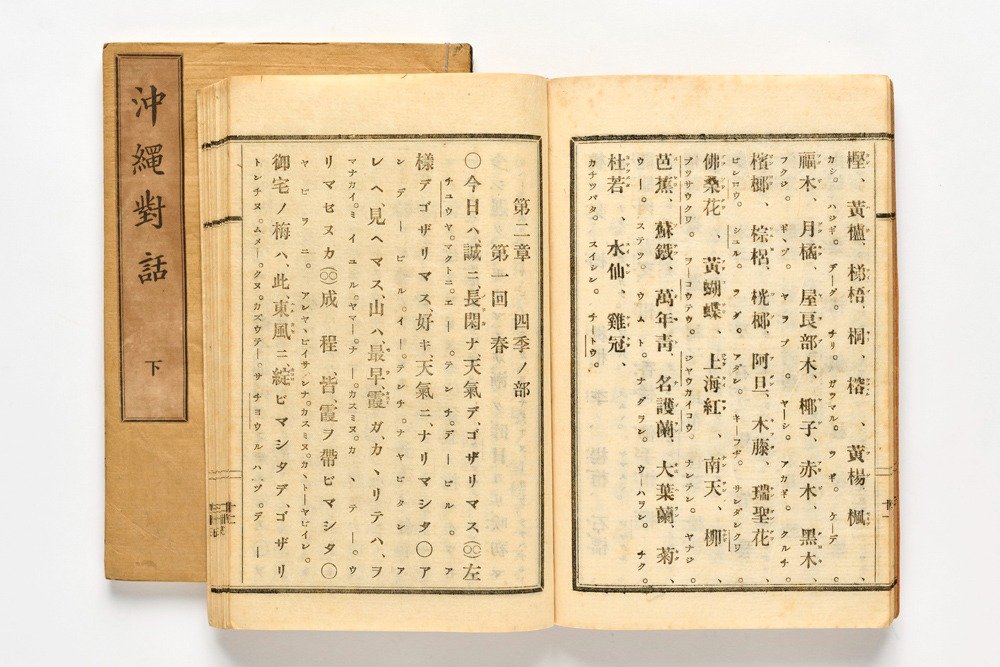 沖繩對話 下
樫、黃櫨、梯梧、桐、榕、黃楊、楓、
カシ。ハジギ。デーグ。チリ。ガヅマル。ウギ。ケーデ。
福木、月橘、屋良部木、椰子、赤木、黒木、
フクジ。ギギヅ。ヤラブ。ヤーシ。アカギ。クルチ。
檳榔、棕梠、桄榔、阿旦、木藤、瑞聖花、
ビンロウ。シュル。ヲゥグ。アダン。キーフヂ。サンダンクワ
佛桑花、黃蝴蝶、上海紅、南天、柳、
ブツサウクワ。ヲーコウテウ。ジヤウカイコウ。ナンテン。ヤナジ。
芭蕉、蘇鐵、萬年靑、名護蘭、大葉蘭、菊、
ウー。ステツ。ウムト。ナグヲン。ウーハヲン。チク。
杜若、水仙、雞冠、
カチツバタ。スイシン。チトウ。
第二章 四季ノ部
第一回 春
〇今日ハ、誠ニ、長閑ナ、天氣デ、ゴザリマス〇〇左
チュウヤ。マクトニ。エー。テンチデ。ービル。ア
様デゴザリマス好キ、天氣ニ、ナリマシタ〇ア
ンデービル。イー。テンチ。ナヤビタン。ア
レ、ヘ、見ヘマス、山ハ、最早、霞ガ、カヽリテハ、ヲ
マナカイ。ミイユル。ヤマーナ。ーカスミヌ。カヽテー。ウ
リマセヌカ〇〇成程、皆、霞ヲ帶ビマシタ〇
ヤビヲニ。アンヤヽビイサンナ。カスミヌ。カヽトーヤビイン。
御宅ノ梅ハ、此、東風ニ綻ビマシタデ、ゴザリ
トンチヌ。ムメー。クヌ。カズウテー。サチョウルハヅ。デー